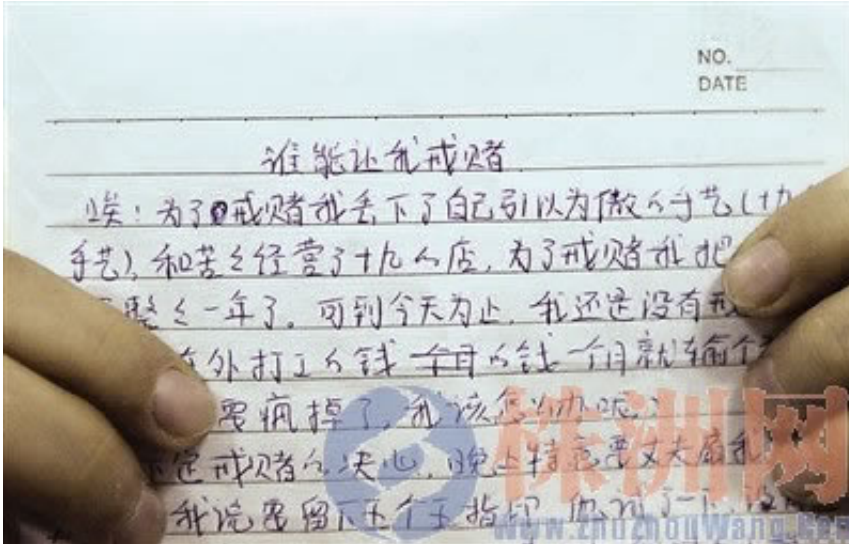 NO.
DATE
谁能让我戒赌
唉！为了戒赌我丢下了自己引以为傲的手艺（十九
手艺），和苦々经营了十九的店，为了戒赌我把
整々一年了。可到今天为止，我还是没有戒
外打工的钱一个月的钱一个月就输个
要疯掉了，我该怎么办呢？
下定戒赌的决心，晚上特意要丈夫扇我
我说要留下五个手指印，他试了一下，没
株洲网
www.zhuzhouwang.com